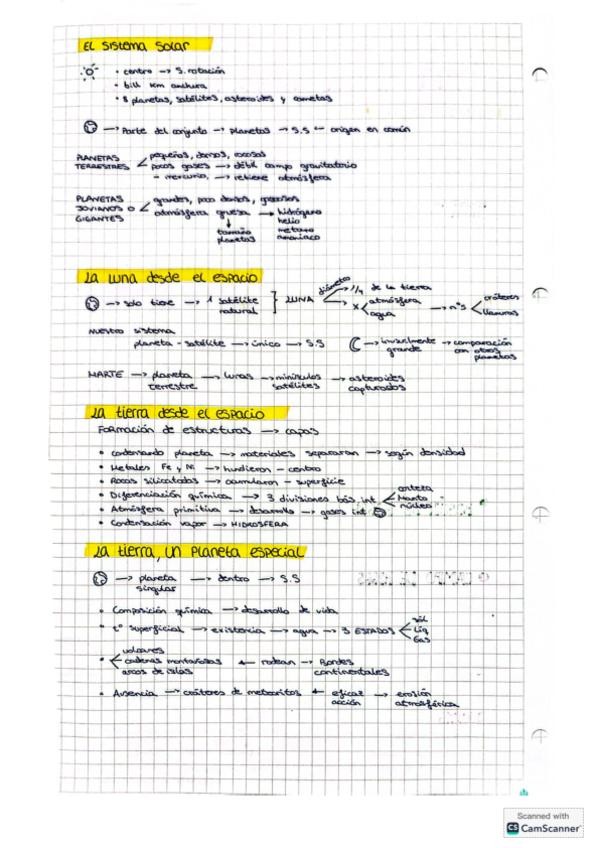 EL SISTEMA SOLAR
• centro → S. rotación
• bill km anchura
• 8 planetas, satélites, asteroides y cometas
→ Parte del conjunto → planetas → S.S ← origen en común
PLANETAS TERRESTRES < pequeñas, densos, rocosas
pocos gases → débil campo gravitatorio
- mercurio, → retiene atmósfera
PLANETAS JOVIANOS O GIGANTES < grandes, poco densos, gaseosos
atmósfera gruesa → hidrógeno
helio
metano
amoniaco
↓
tamaño planetas
La luna desde el espacio
→ solo tiene → 1 satélite natural ] LUNA
diámetro → 1/4 de la tierra
x < atmósfera
agua
→ nºs < cráteres
llanuras
Nuestro sistema
planeta - satélite → único → S.S
→ inusualmente grande → comparación con otros planetas
MARTE → planeta terrestre → lunas → minúsculos satélites → asteroides capturados
La tierra desde el espacio
Formación de estructuras → capas
• condensando planeta → materiales separaron → según densidad
• Metales Fe y Ni → hundieron → centro
• Rocas silicatadas → acumularon → superficie
• Diferenciación química → 3 divisiones bás. int < corteza
Manto
núcleo
• Atmósfera primitiva → desarrollo → gases int
• Condensación vapor → HIDROSFERA
La tierra, un planeta especial
→ planeta singular → dentro → S.S
• Composición química → desarrollo de vida
• tº superficial → existencia → agua → 3 ESTADOS < sól
Líq
Gas
• < volcanes
cadenas montañosas
arcos de islas
← rodean → Bordes continentales
• Ausencia → cráteres de meteoritos ← eficaz acción → erosión atmosférica
Scanned with
CS CamScanner